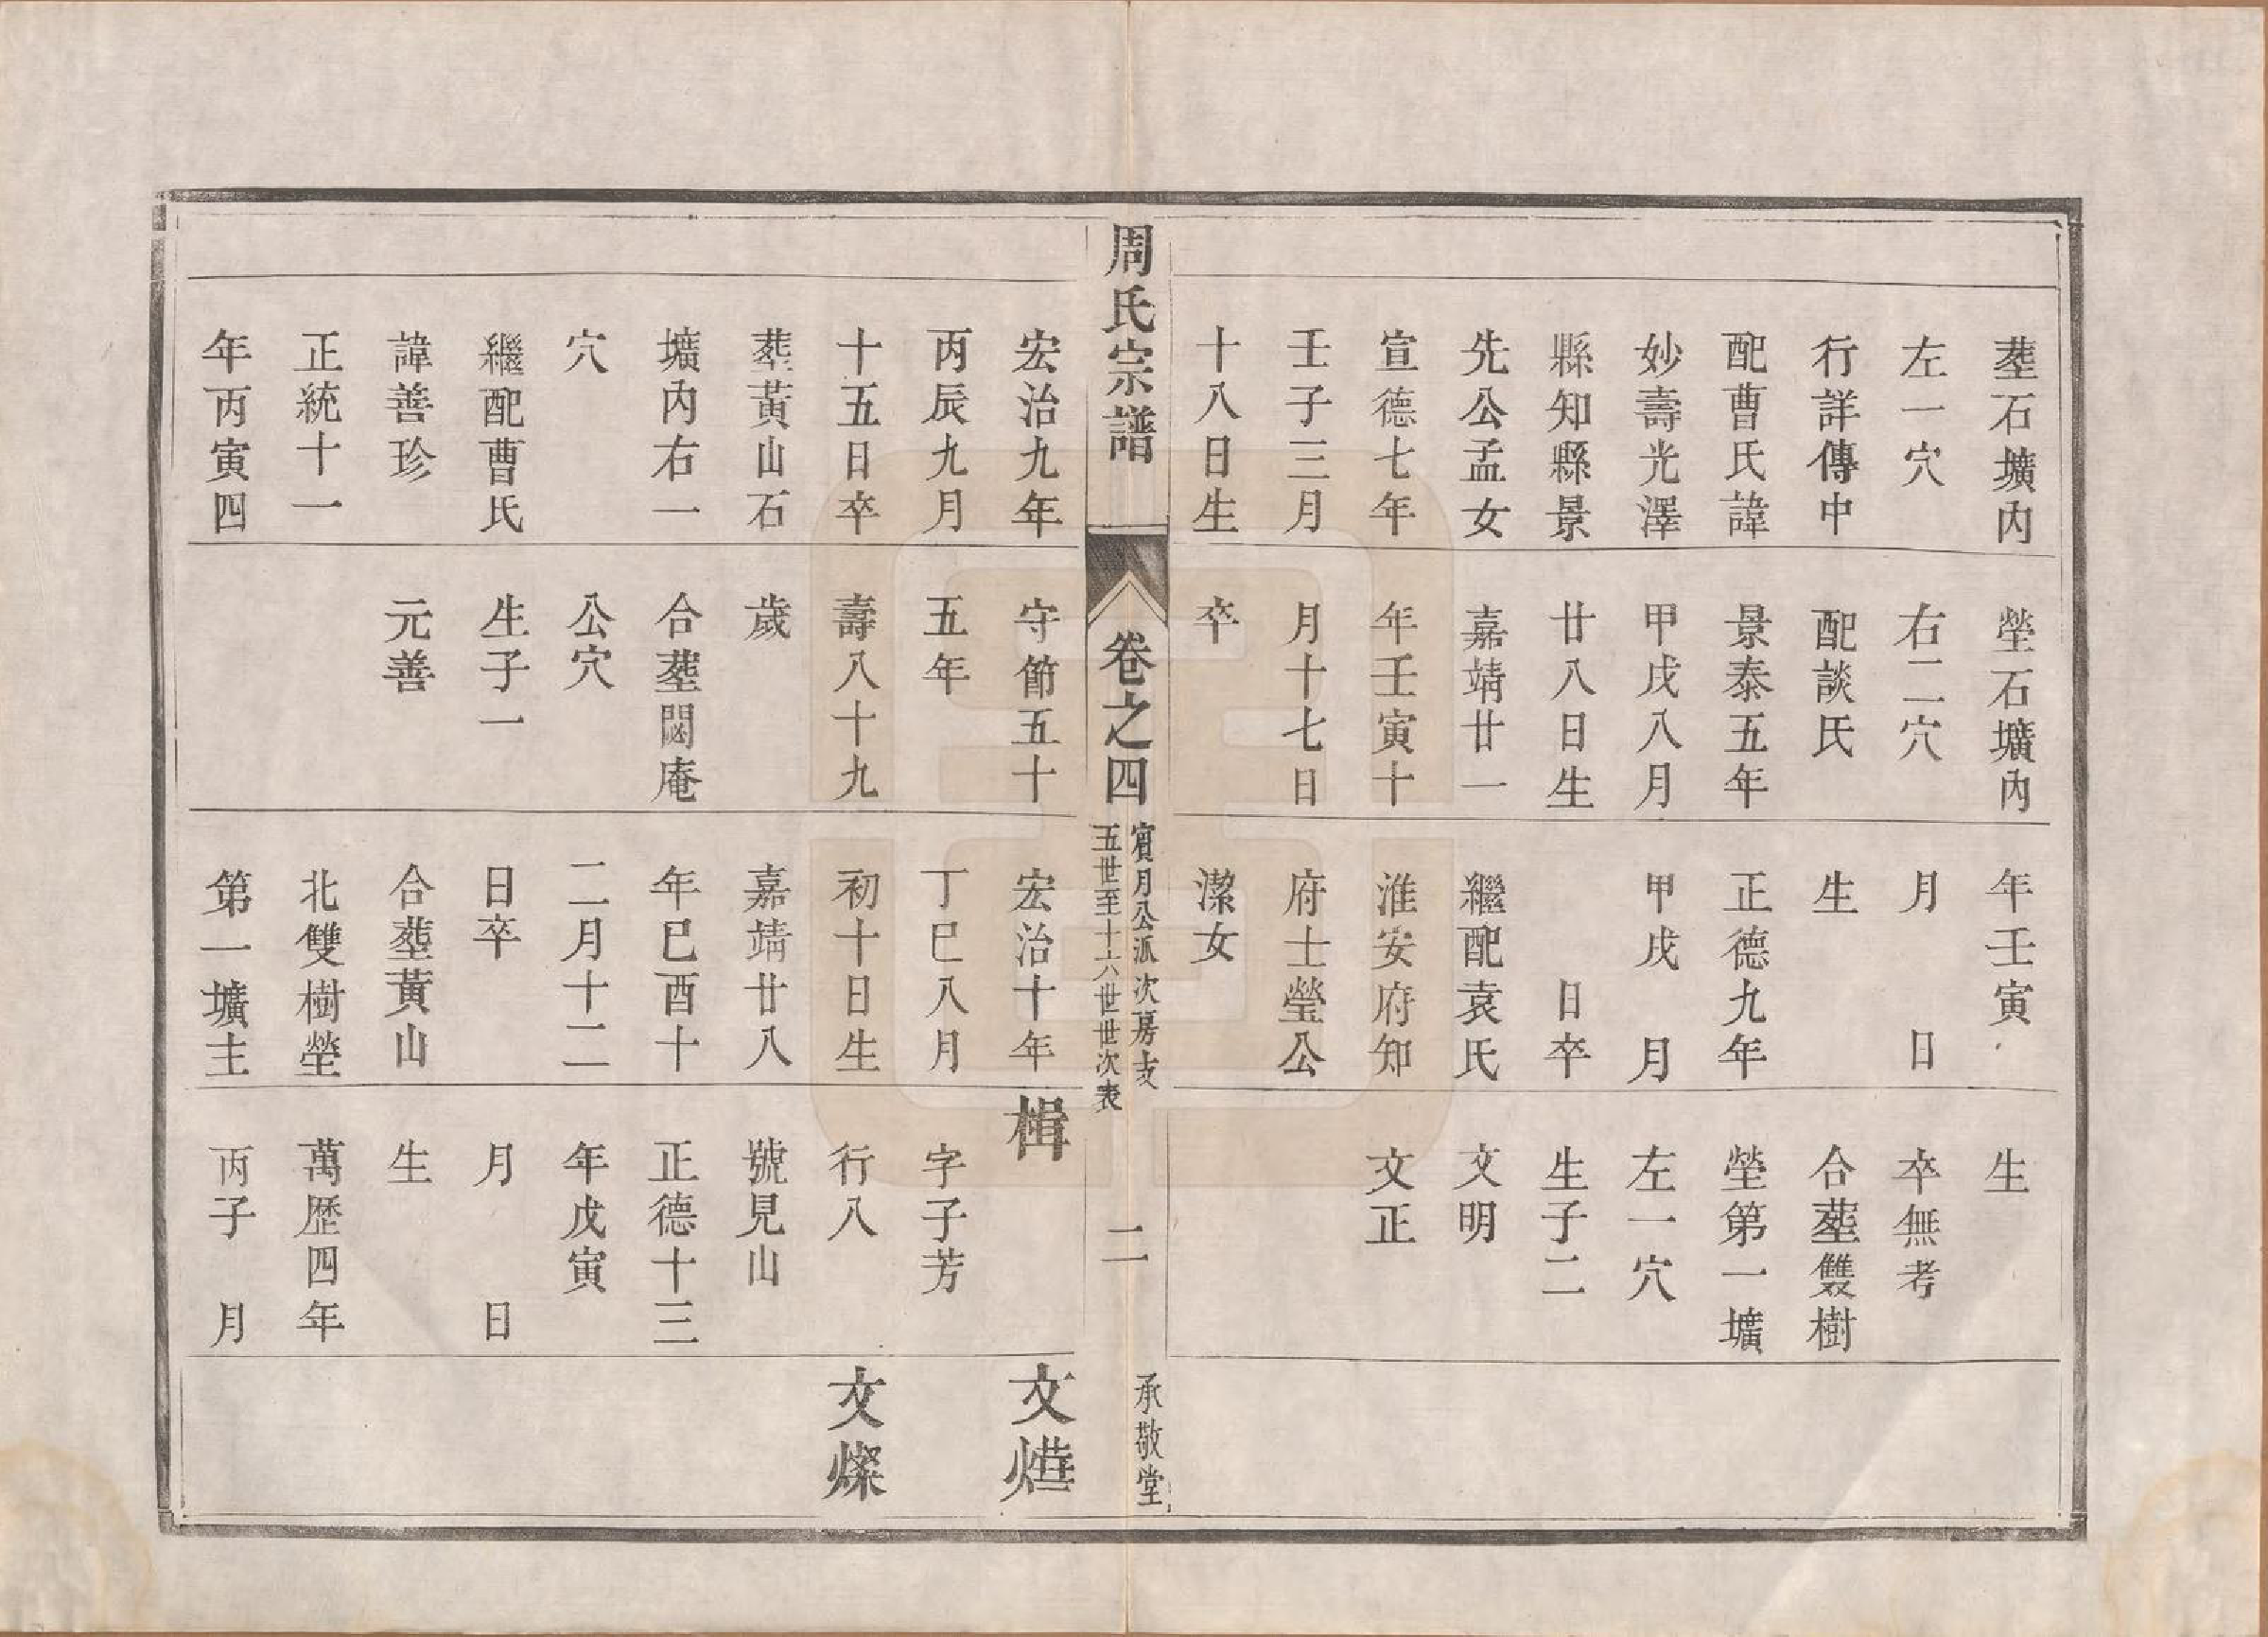 葬石壙內
左一穴
行詳傳中
配曹氏諱
妙壽光澤
縣知縣景
先公孟女
宣德七年
壬子三月
十八日生
塋石壙內
右二穴
配談氏
景泰五年
甲戌八月
廿八日生
嘉靖廿一
年壬寅十
月十七日
卒
年壬寅
月 日
生
正德九年
甲戌 月
日卒
繼配袁氏
淮安府知
府士瑩公
潔女
生
卒無考
合葬雙樹
塋第一壙
左一穴
生子二
文明
文正
周氏宗譜
卷之四
賓月公派次房支
五世至十六世世次表
二
承敬堂
宏治九年
丙辰九月
十五日卒
葬黃山石
壙內右一
穴
繼配曹氏
諱善珍
正統十一
年丙寅四
守節五十
五年
壽八十九
歲
合葬閟庵
公穴
生子一
元善
宏治十年
丁巳八月
初十日生
嘉靖廿八
年巳酉十
二月十二
日卒
合葬黃山
北雙樹塋
第一壙主
楫
字子芳
行八
號見山
正德十三
年戊寅
月 日
生
萬歷四年
丙子 月
文燁
文燦